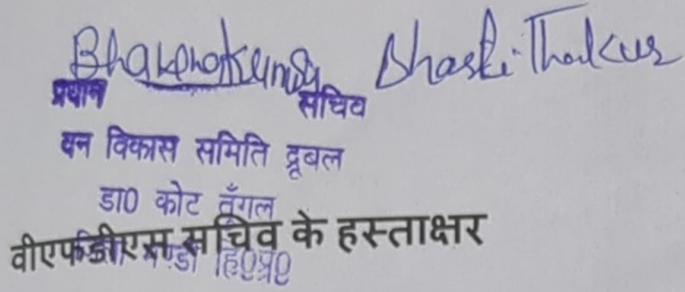 Bhavenakumari Bhakti Thakur
प्रधान सचिव
वन विकास समिति द्रूबल
डा0 कोट तुँगल
वीएफडीएस सचिव के हस्ताक्षर
मण्डी हि0प्र0